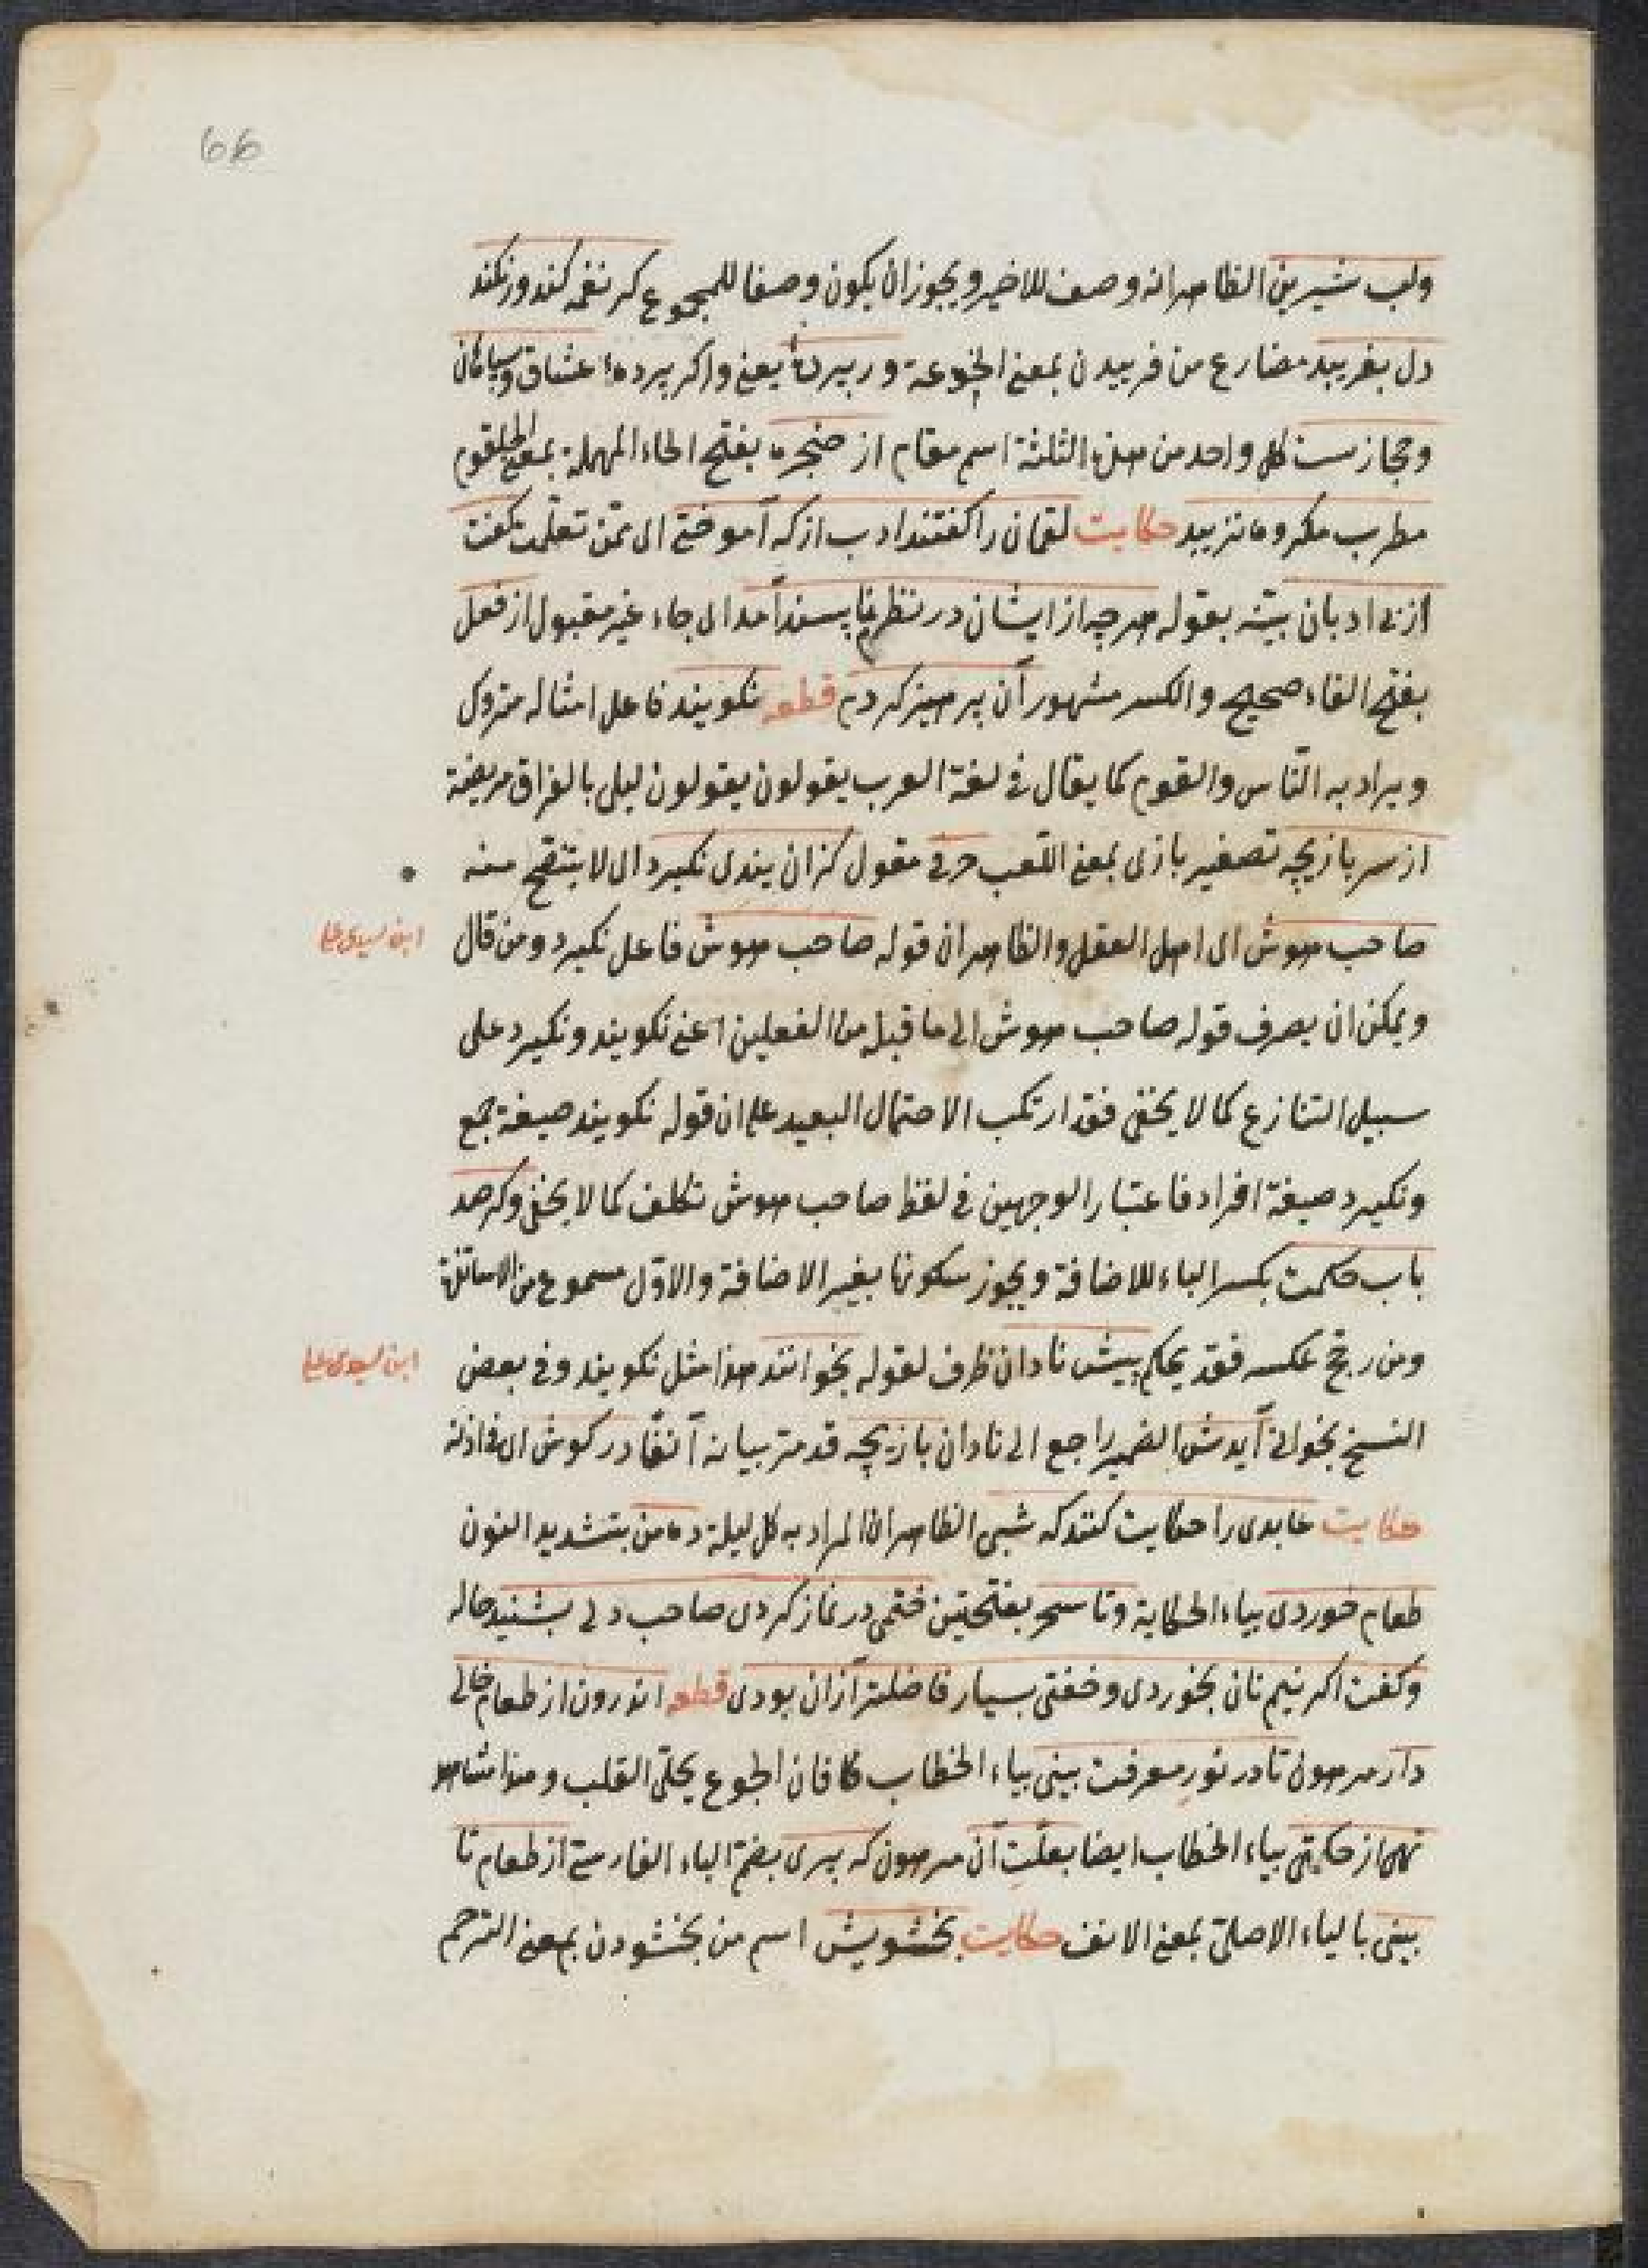 66
ولب شیرین الظاهر انه وصف للاخیر ویجوز ان یکون وصفا للمجموع کر نغمه کند ورنکند
دل بفریبد مضارع من فریبیدن بمعنی الخدعة ور پردهٔ یعنی واکر پرده عشاق وسپاهان
وحجازست کل واحد من هذه الثلثة اسم مقام از حنجره بفتح الحاء المهملة بمعنی الحلقوم
مطرب مکروه نزیبد حکایت لقمان را کفتند ادب از که آموختی ای ممّن تعلّمت کفت
از بی ادبان بیّنه بقوله هرچه از ایشان در نظرم ناپسند آمد ای جاء غیر مقبول از فعل
بفتح الفاء صحیح والکسر مشهور آن پرهیز کردم قطعه نکویند فاعل امثاله متروک
ویراد به النّاس والقوم کما یقال فی لغة العرب یقولون یقولون لیلی بالعراق مریضة
از سر بازیچه تصغیر بازی بمعنی اللّعب حرفی مقول کزان پندی نکیرد ای لا ینتصح منه
صاحب هوش ای اهل العقل والظاهر ان قوله صاحب هوش فاعل نکیرد ومن قال
ابن سیدی علی
ویمکن ان یصرف قوله صاحب هوش الی ما قبله من الفعلین اعنی نکویند ونکیرد علی
سبیل التنازع کما لا یخفی فقد ارتکب الاحتمال البعید علی ان قوله نکویند صیغة جمع
ونکیرد صیغة افراد فاعتبار الوجهین فی لفظ صاحب هوش تکلف کما لا یخفی وکر صد
باب حکمت بکسر الباء للاضافة ویجوز سکونها بغیر الاضافة والاوّل مسموع من الاساتذة
ومن رجّح عکسه فقد یحکم پیش نادان ظرف لقوله بخوانند هذا مثل نکویند وفی بعض
ابن سیدی علی
النسخ بخوانی آیدش الضمیر راجع الی نادان بازیچه قد مرّ بیانه آنفا در کوش ای فی اذنه
حکایت عابدی را حکایت کنند که شبی الظاهر ان المراد به کل لیلة ده من بتشدید النون
طعام خوردی بیاء الحکایة وتا سحر بفتحتین ختمی در نماز کردی صاحب دلی بشنید حاله
وکفت اکر نیم نان بخوردی وخفتی بسیار فاضلتر ازان بودی قطعه اندرون از طعام خالی
دار مرهون تا در نور معرفت بینی بیاء الخطاب فان الجوع یجلی القلب وهذا مشاهد
تهی از حکمتی بیاء الخطاب ایضا بعلّت آن مرهون که پری بضم الباء الفارسی از طعام تا
بینی بالیاء الاصلی بمعنی الانف حکایت بخشویش اسم من بخشودن بمعنی الترحم